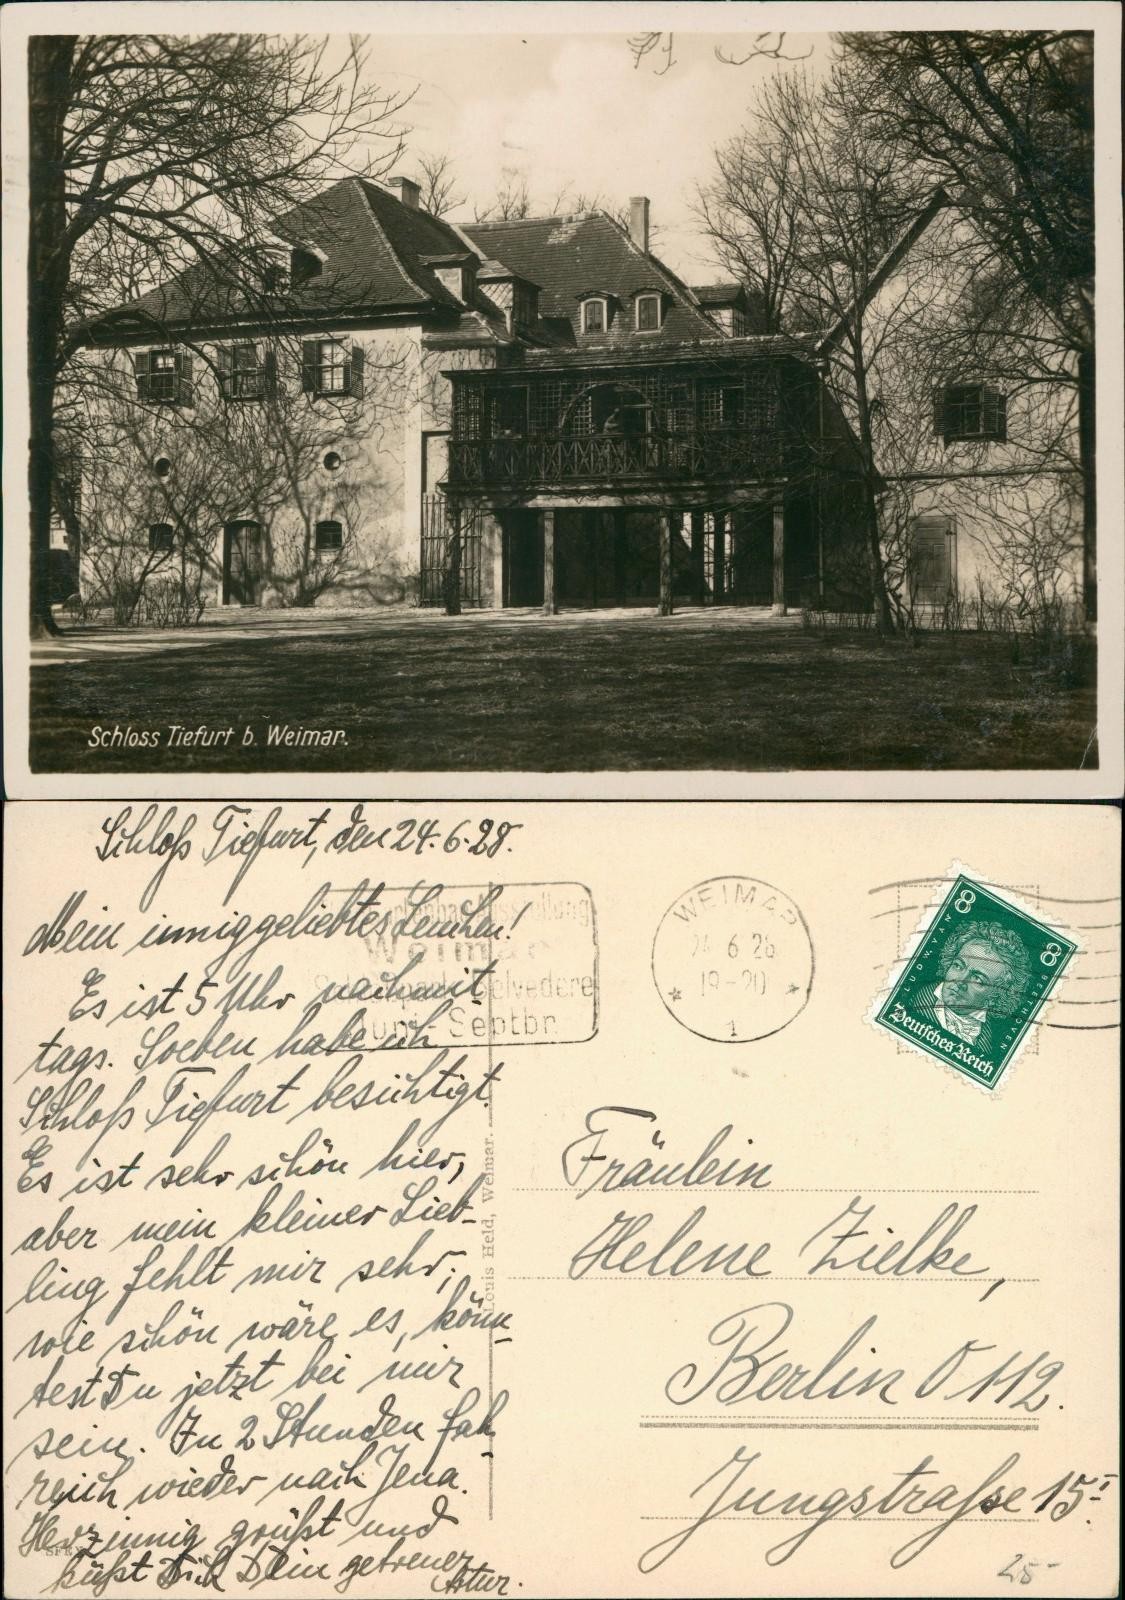 Schloss Tiefurt b. Weimar.
Schloß Tiefurt, den 24.6.28.
Mein inniggeliebtes Lenchen!
Es ist 5 Uhr nachmit-
tags. Soeben habe ich
Schloß Tiefurt besichtigt.
Es ist sehr schön hier,
aber mein kleiner Lieb-
ling fehlt mir sehr;
wie schön wäre es, könn-
test Du jetzt bei mir
sein. In 2 Stunden fah-
re ich wieder nach Jena.
Herzinnig grüßt und
küßt Dich Dein getreuer
Artur.
Gartenbauausstellung
Weimar
Schloßpark Belvedere
Juni-Septbr.
WEIMAR
24 6 28
19-20
1
8
8
LUDW. VAN
BEETHOVEN
Deutsches Reich
Louis Held, Weimar.
Fräulein
Helene Zielke,
Berlin O 112.
Jungstraße 15 I.
25-